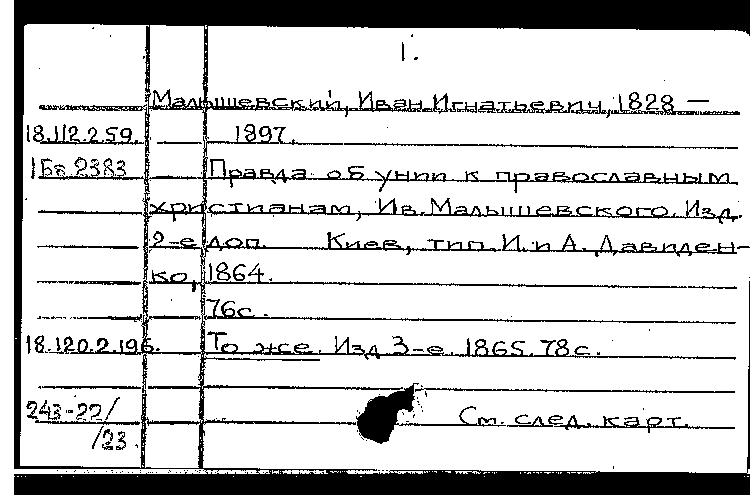 1.
Малышевский, Иван Игнатьевич, 1828 —
18.112.2.59. 1897.
1Бг 2383 Правда об унии к православным
христианам, Ив. Малышевского. Изд.
2-е доп. Киев, тип. И. и А. Давиден-
ко, 1864.
76с.
18.120.2.196. То же. Изд 3-е. 1865. 78с.
243-22/ См. след. карт.
/23.